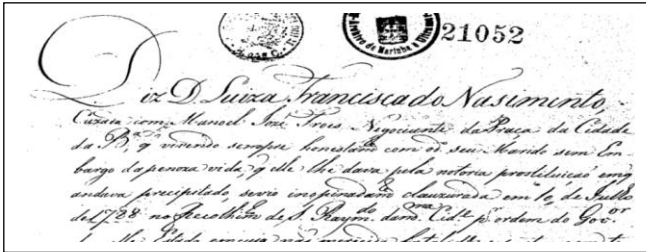 21052
Diz D. Luiza Francisca do Nasimento
Cazada com Manoel Joze Froes Negociante da Praça da Cidade
da Bª, q vivendo sempre honestamᵉ com o seu Marido sem Em
bargo da penoza vida, q elle lhe dava pela notoria prostituicaõ emq
andava precipitado, sevio inopinadamᵉ clauzurada em 10, de Julho
de 1788 no Recolhimᵗᵒ de S. Raymᵈᵒ da mᵐᵃ Cidᵉ pʳ ordem do Govᵒʳ